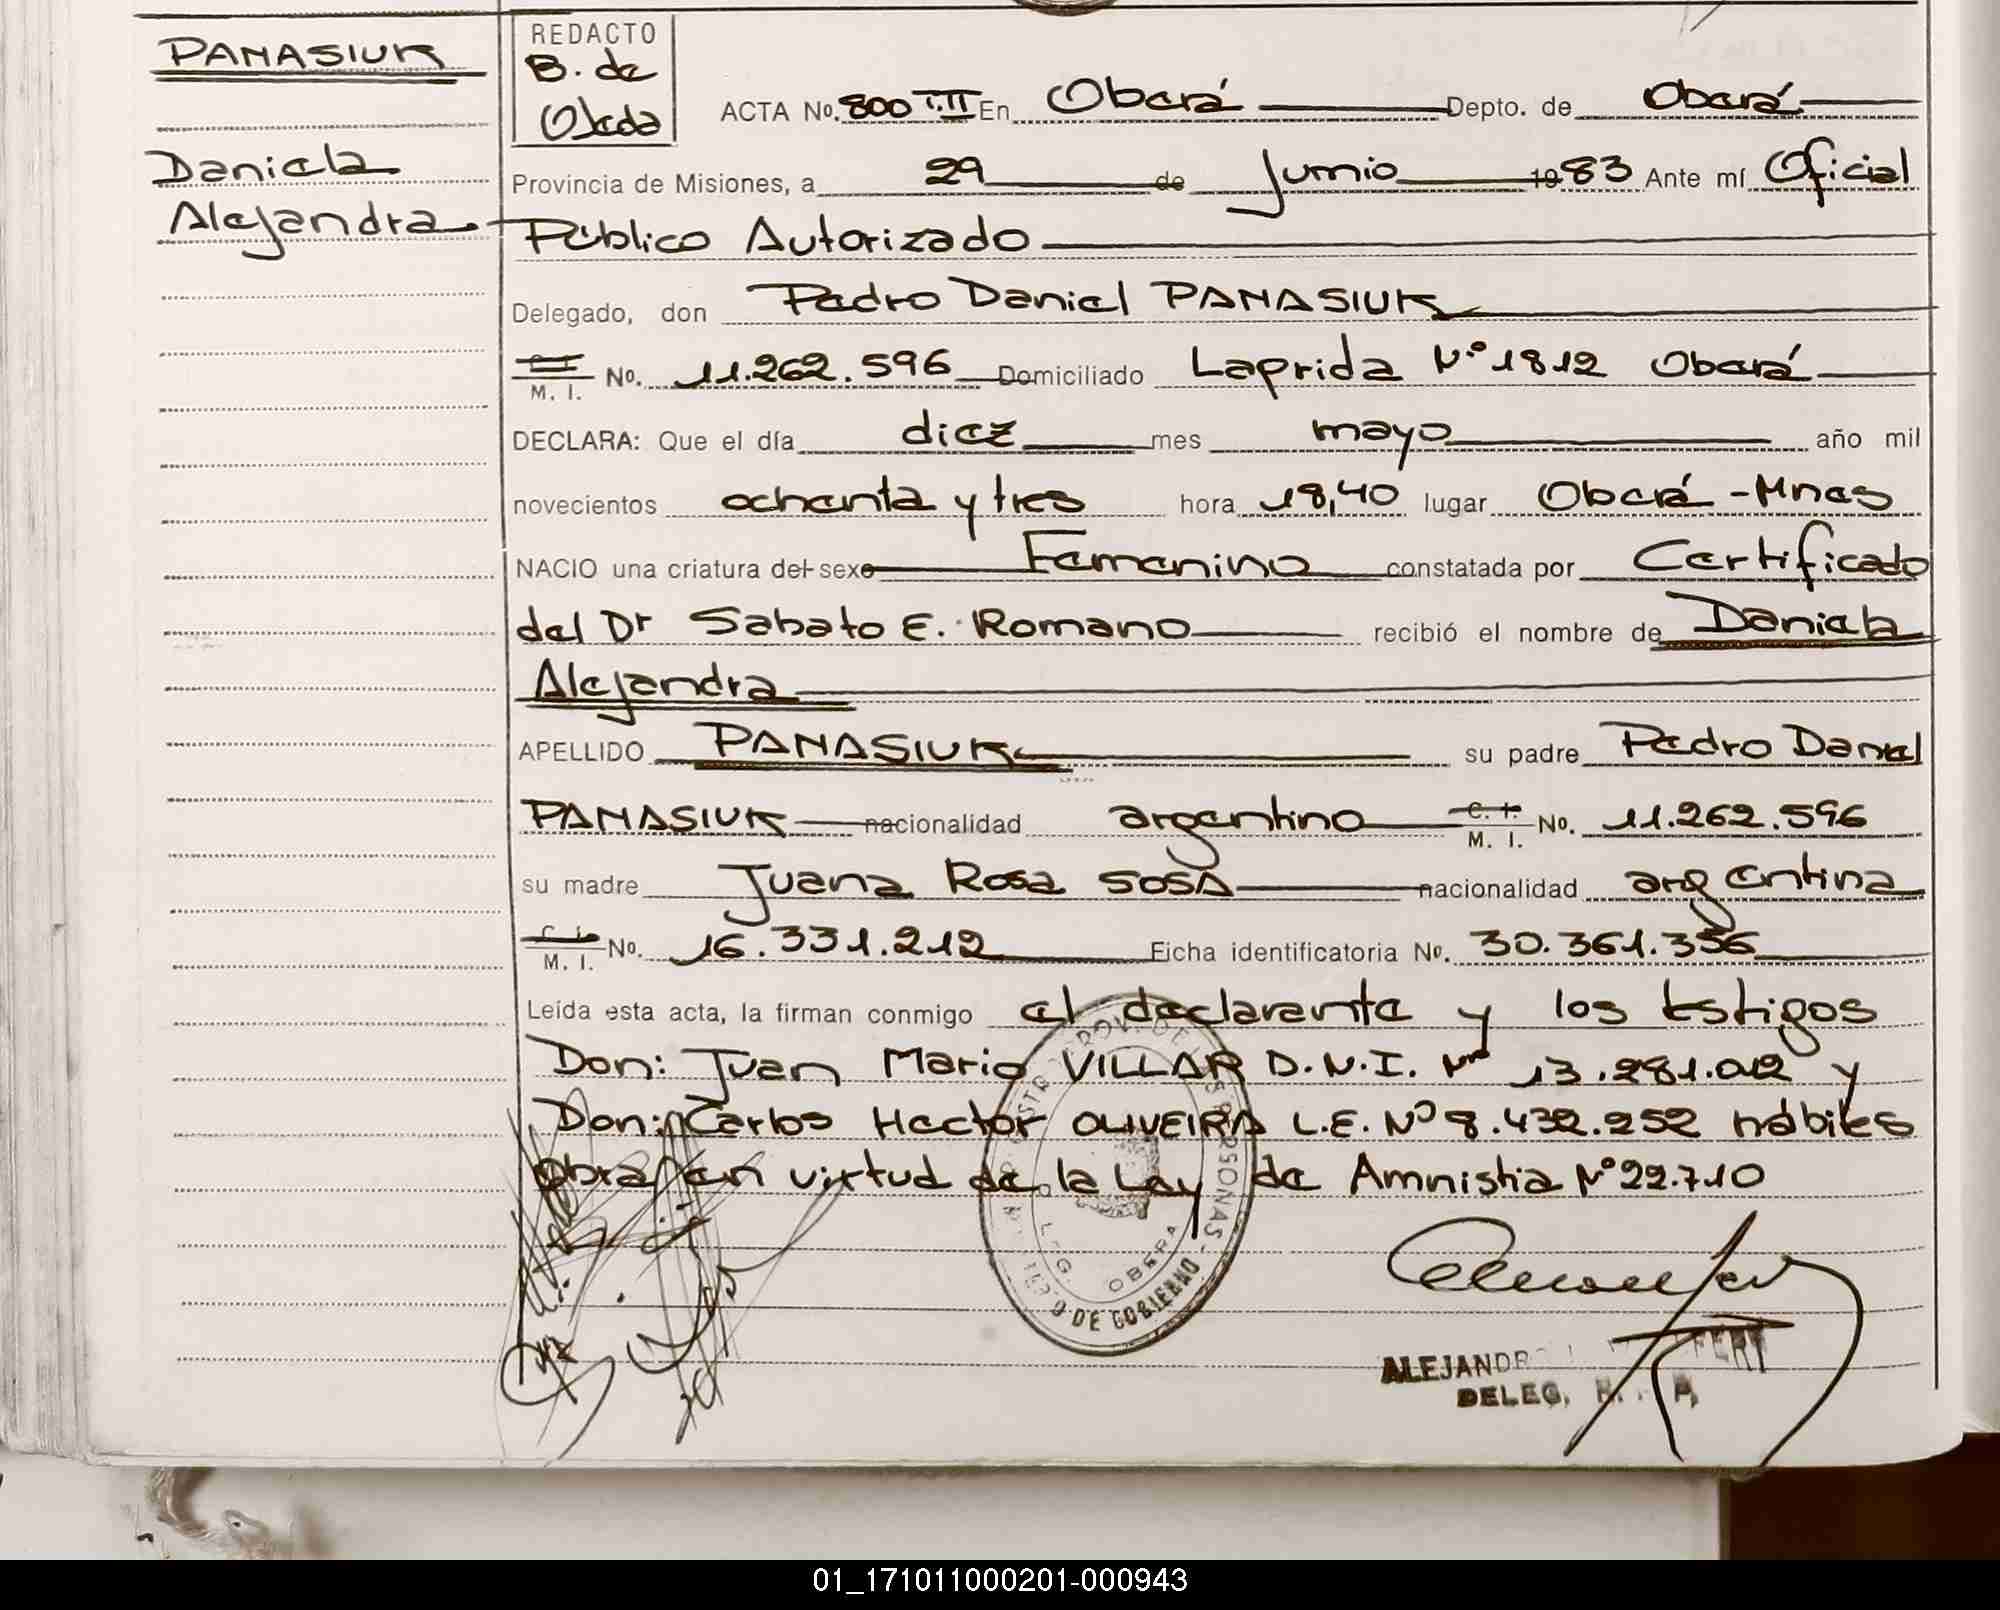 PANASIUK
Daniela
Alejandra
REDACTO
B. de
Ojeda
ACTA No. 800 T.II En Oberá Depto. de Oberá
Provincia de Misiones, a 29 de Junio 1983 Ante mí Oficial
Público Autorizado
Delegado, don Pedro Daniel PANASIUK
M. I. No. 11.262.596 Domiciliado Laprida Nº 1812 Oberá
DECLARA: Que el día diez mes mayo año mil
novecientos ochenta y tres hora 18,40 lugar Oberá - Mnes
NACIO una criatura del sexo Femenino constatada por Certificado
del Dr Sabato E. Romano recibió el nombre de Daniela
Alejandra
APELLIDO PANASIUK su padre Pedro Daniel
PANASIUK nacionalidad argentino C. I. M. I. No. 11.262.596
su madre Juana Rosa SOSA nacionalidad argentina
C. I. M. I. No. 16.331.212 Ficha identificatoria No. 30.361.356
Leída esta acta, la firman conmigo el declarante y los testigos
Don: Juan Mario VILLAR D.N.I. Nº 13.281.012 y
Don: Carlos Hector OLIVEIRA L.E. Nº 8.432.252 hábiles
obra en virtud de la Ley de Amnistia Nº 22.710
OBERA
DE GOBIERNO
DELEG.
01_171011000201-000943